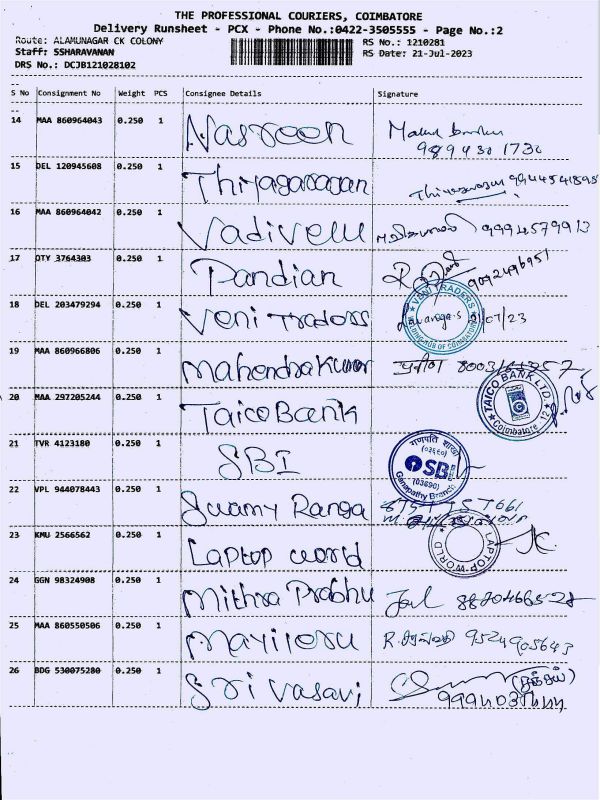 THE PROFESSIONAL COURIERS, COIMBATORE
Delivery Runsheet - PCX - Phone No.:0422-3505555 - Page No.:2
Route: ALAMUNAGAR CK COLONY RS No.: 1210281
Staff: SSHARAVANAN RS Date: 21-Jul-2023
DRS No.: DCJB121028102
S No Consignment No Weight PCS Consignee Details Signature
14 MAA 860964043 0.250 1 Nasreen
9894301730
15 DEL 120945608 0.250 1 Thiyagarajan 9944541895
16 MAA 860964042 0.250 1 Vadivelu 9994579913
17 QTY 3764303 0.250 1 Pandian 9092496951
18 DEL 203479294 0.250 1 Veni Traders VENI TRADERS 21/07/23
19 MAA 860966806 0.250 1 Mahendrakumar
20 MAA 297205244 0.250 1 Taico Bank TAICO BANK LTD. Coimbatore 12
21 TVR 4123180 0.250 1 SBI गणपति शाखा (०३६९०) SBI (03690) Ganapathy Branch
22 VPL 944078443 0.250 1 Swamy Ranga
23 KMU 2566562 0.250 1 Laptop world LAPTOP WORLD
24 GGN 98324908 0.250 1 Mithra Prabhu
25 MAA 860550506 0.250 1 9524905643
26 BDG 530075280 0.250 1 Sri Vasavi